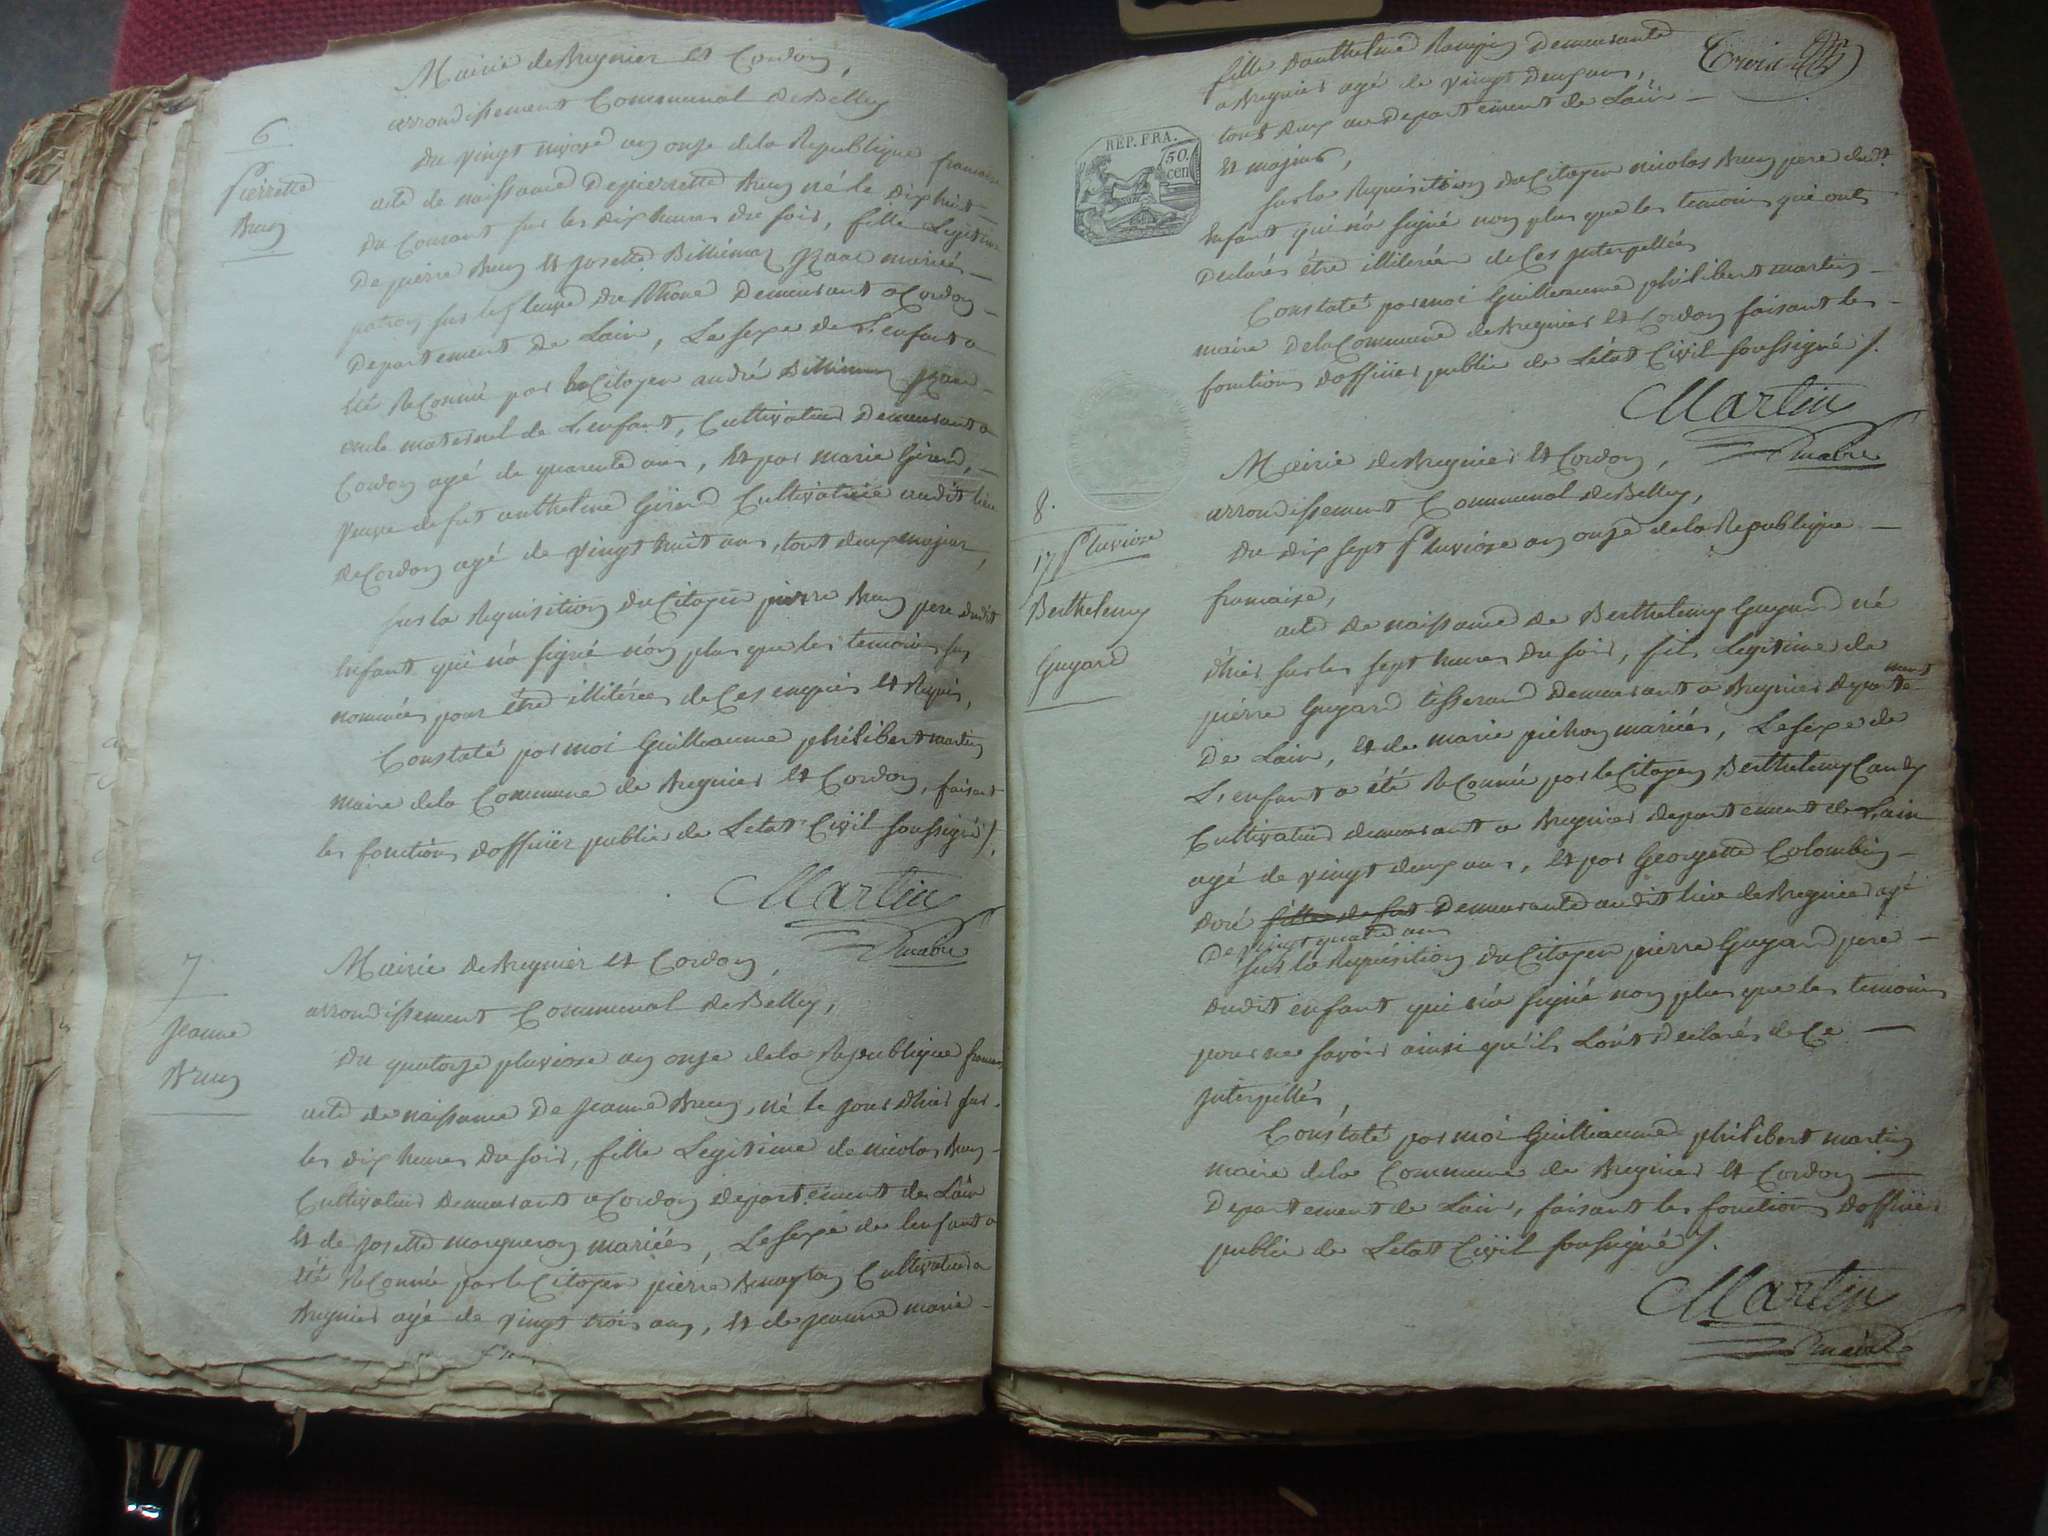 Mairie de Bregnier et Cordon,
arrondissement Communal de Belley
6
Pierrette
Brun
Du vingt nivose an onze de la Republique francaise
acte de naissance de pierrette Brun né le dix huit
du Courant sur les dix heures du soir, fille Legitime
de pierre Brun et Josette Billiemaz mariés
patron sur le fleuve du Rhone Demeurant a Cordon
departement de Lain, Le sexe de L'enfant a
été Reconnu par le Citoyen andré Billiemaz
oncle maternel de L'enfant, Cultivateur demeurant a
Cordon agé de quarente ans, et par marie Girerd,
veuve de fut anthelme Girerd Cultivatrice audit lieu
de Cordon agé de vingt huit ans, tout deux majeur,
sur la Requisition du Citoyen pierre Brun pere dudit
Enfant qui n'a signé non plus que les temoins sus
nommées pour être illitérées de ces enquis et Requis,
Constaté par moi Guilleaume philibert martin
maire de la Commune de Bregnier et Cordon, faisant
les fonctions dofficier public de Letat Civil soussigné /.
Martin
maire
Mairie de Bregnier et Cordon,
arrondissement Communal de Belley,
7
Jeanne
Brun
Du quatorze pluviose an onze de la Republique francaise
acte de naissance de Jeanne Brun, né le jour dhier sur
les dix heures du soir, fille Legitime de nicolas Brun
Cultivateur demeurant a Cordon departement de Lain
et de Josette marqueron mariés, Le sexe de lenfant a
été Reconnu par le Citoyen pierre Cultivateur a
Bregnier agé de vingt trois ans, et de jeanne marie
fille danthelme demeurante
a Bregnier agé de vingt deux ans,
tout deux au departement de Lain
et majeur,
sur la Requisition du Citoyen nicolas Brun pere dudit
Enfant qui n'a signé non plus que les temoins qui ont
declarés être illiterées de ces interpellées
Constaté par moi Guilleaume philibert martin
maire de la Commune de Bregnier et Cordon faisant les
fonctions dofficier public de Létat Civil soussigné /.
Martin
maire
REP. FRA.
50.
cen
Mairie de Bregnier et Cordon,
arrondissement Communal de Belley,
8.
17 Pluviose
Berthelemy
Guyard
Du dix sept Pluviose an onze de la Republique
francaise,
acte de naissance de Berthelemy Guyard né
dhier sur les sept heures du soir, fils legitime de
pierre Guyard tisserand demeurant a Bregnier departement
de Lain, et de marie pichon mariés, Le sexe de
L'enfant a été Reconnu par le Citoyen Berthelemy
Cultivateur demeurant a Bregnier departement de Lain
agé de vingt deux ans, et par Georgette Colombin
fille de fut demeurante audit lieu de Bregnier agé
de vingt quatre ans
sur la Requisition du Citoyen pierre Guyard pere
dudit enfant qui n'a signé non plus que les temoins
pour ne savoir ainsi qu'ils L'ont declarés de ce
interpellés,
Constaté par moi Guilleaume philibert martin
maire de la Commune de Bregnier et Cordon
Departement de Lain, faisant les fonctions dofficier
public de Letat Civil soussigné /.
Martin
maire